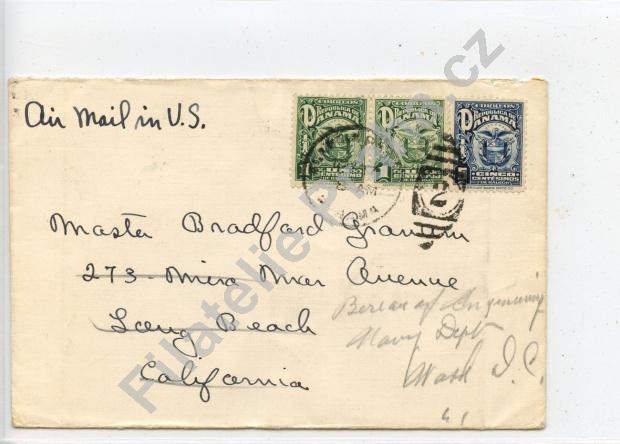 Air Mail in U.S.
CORREOS
REPUBLICA DE
PANAMA
UN
CENTESIMO
CORREOS
REPUBLICA DE
PANAMA
1
UN
CENTESIMO
CORREOS
REPUBLICA DE
PANAMA
CINCO
CENTESIMOS
Master Bradford
273 - Mira Mar Avenue
Long Beach
California
Bureau of Engineering
Navy Dept
Wash D.C.
Filatelie Praha.cz